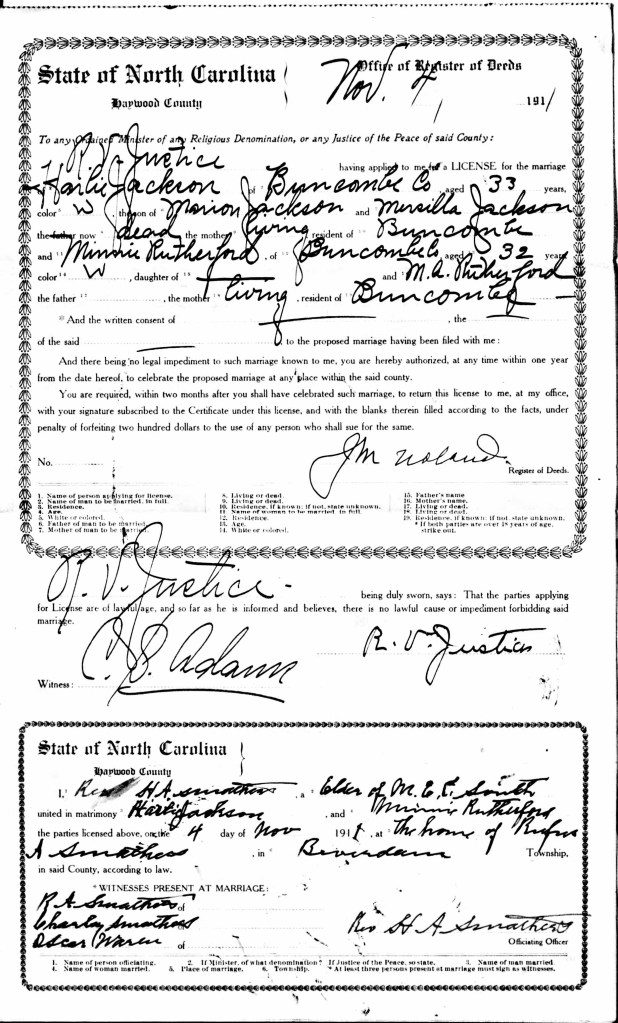 State of North Carolina
Office of Register of Deeds
Haywood County
Nov. 4, 1911
To any Ordained Minister of any Religious Denomination, or any Justice of the Peace of said County:
R. V. Justice having applied to me for a LICENSE for the marriage
of Harlie Jackson of Buncombe Co, aged 33 years,
color W, the son of Marion Jackson and Mersilla Jackson
the father now dead, the mother living, resident of Buncombe
and Minnie Rutherford, of Buncombe Co, aged 32 years
color W, daughter of and M. A. Rutherford
the father, the mother living, resident of Buncombe
* And the written consent of , the
of the said , to the proposed marriage having been filed with me:
And there being no legal impediment to such marriage known to me, you are hereby authorized, at any time within one year
from the date hereof, to celebrate the proposed marriage at any place within the said county.
You are required, within two months after you shall have celebrated such marriage, to return this license to me, at my office,
with your signature subscribed to the Certificate under this license, and with the blanks therein filled according to the facts, under
penalty of forfeiting two hundred dollars to the use of any person who shall sue for the same.
J M Noland
No. Register of Deeds.
1. Name of person applying for license.
2. Name of man to be married, in full.
3. Residence.
4. Age.
5. White or colored.
6. Father of man to be married
7. Mother of man to be married
8. Living or dead.
9. Living or dead.
10. Residence, if known; if not, state unknown.
11. Name of woman to be married, in full.
12. Residence.
13. Age.
14. White or colored.
15. Father's name
16. Mother's name.
17. Living or dead.
18. Living or dead.
19. Residence, if known; if not, state unknown.
* If both parties are over 18 years of age,
strike out.
R. V. Justice being duly sworn, says: That the parties applying
for License are of lawful age, and so far as he is informed and believes, there is no lawful cause or impediment forbidding said
marriage.
R. V. Justice
Witness: Adams
State of North Carolina
Haywood County
I, Rev H A Smathers, a Elder of M. E. C. South
united in matrimony Harlie Jackson, and Minnie Rutherford
the parties licensed above, on the 4 day of Nov 1911, at The home of Rufus
A Smathers, in Beverdam Township,
in said County, according to law.
*WITNESSES PRESENT AT MARRIAGE:
R A Smathers of
Charley Smathers
Oscar Waren of
Rev H A Smathers
Officiating Officer
1. Name of person officiating. 2. If Minister, of what denomination? If Justice of the Peace, so state. 3. Name of man married.
4. Name of woman married. 5. Place of marriage. 6. Township. *At least three persons present at marriage must sign as witnesses.